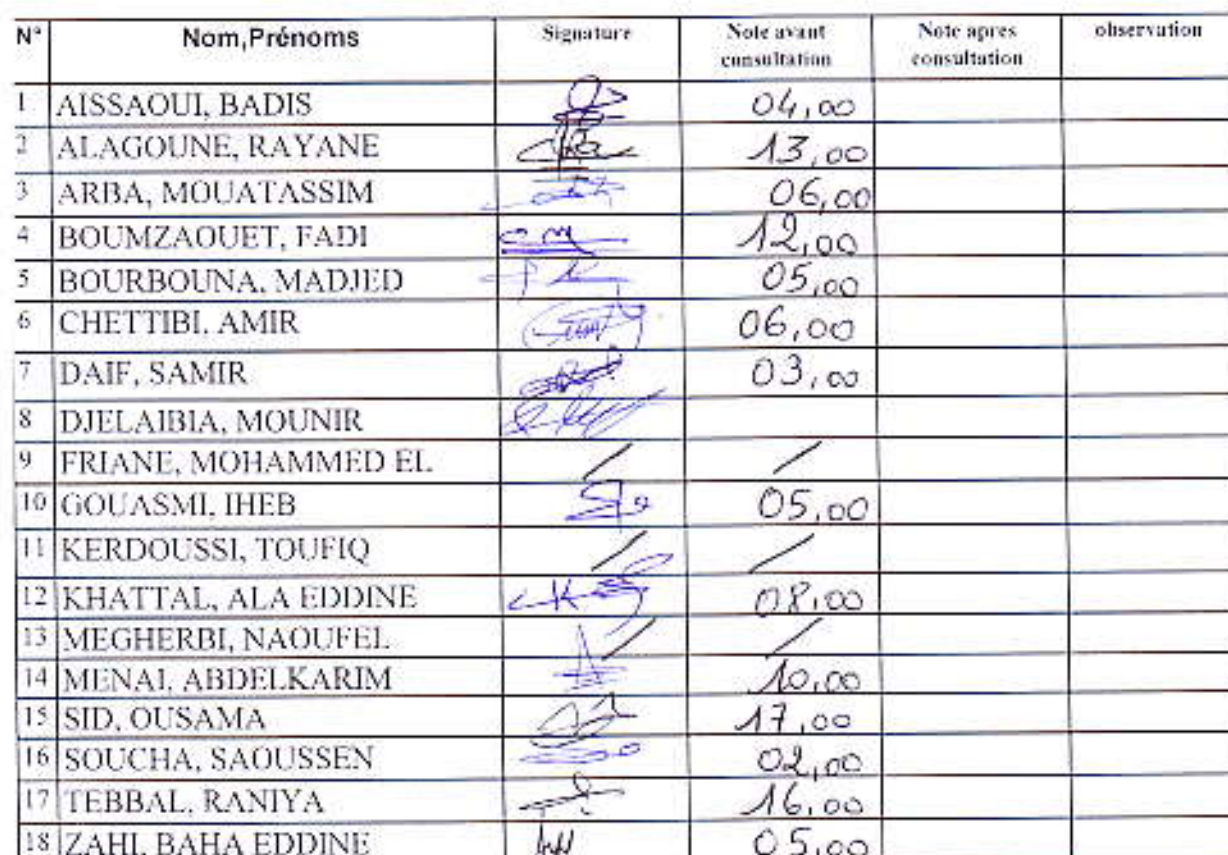 N° Nom,Prénoms Signature Note avant consultation Note apres consultation observation
1 AISSAOUI, BADIS 04,00
2 ALAGOUNE, RAYANE 13,00
3 ARBA, MOUATASSIM 06,00
4 BOUMZAOUET, FADI 12,00
5 BOURBOUNA, MADJED 05,00
6 CHETTIBI, AMIR 06,00
7 DAIF, SAMIR 03,00
8 DJELAIBIA, MOUNIR
9 FRIANE, MOHAMMED EL / /
10 GOUASMI, IHEB 05,00
11 KERDOUSSI, TOUFIQ / /
12 KHATTAL, ALA EDDINE 08,00
13 MEGHERBI, NAOUFEL / /
14 MENAI, ABDELKARIM 10,00
15 SID, OUSAMA 17,00
16 SOUCHA, SAOUSSEN 02,00
17 TEBBAL, RANIYA 16,00
18 ZAHI, BAHA EDDINE 05,00